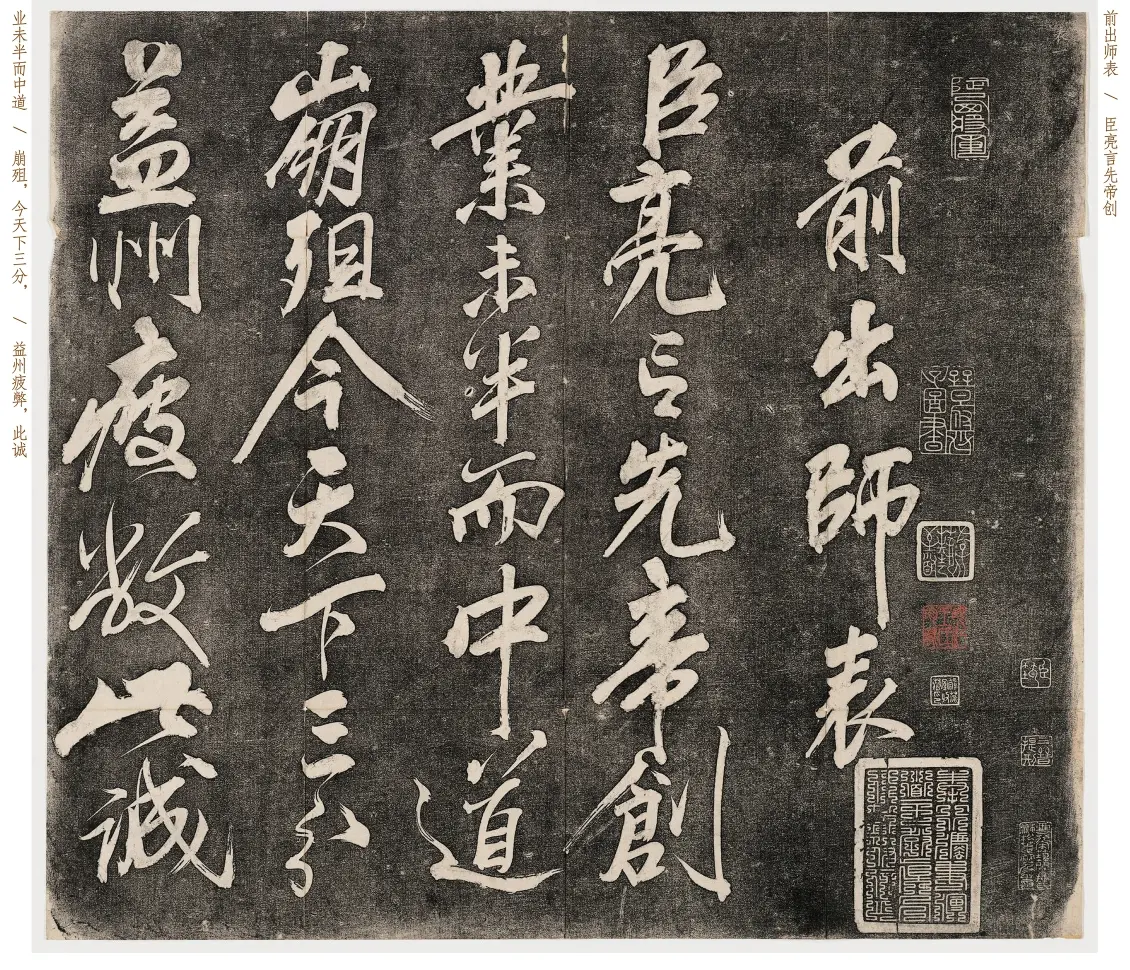 前出师表 / 臣亮言先帝创
前出師表
臣亮言先帝創
業未半而中道
崩殂今天下三分
益州疲敝此誠
业未半而中道 / 崩殂，今天下三分， / 益州疲弊，此诚